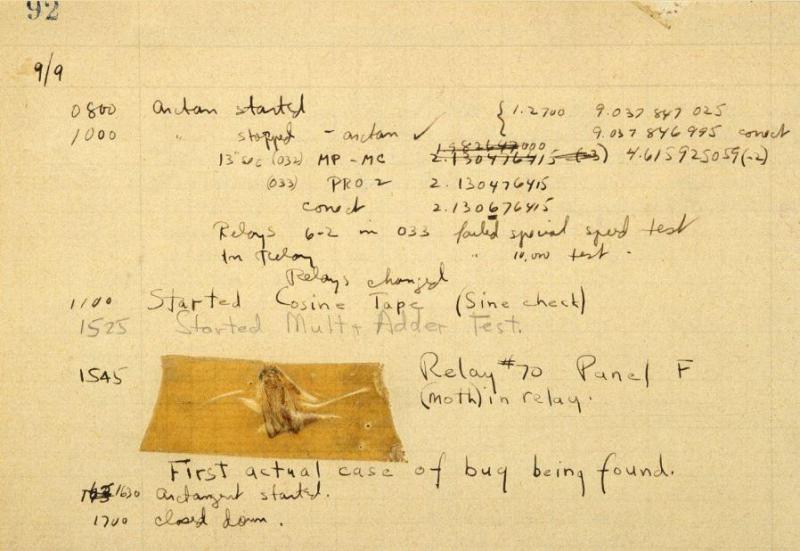 92
9/9
0800 arctan started { 1.2700 9.037 847 025
1000 " stopped - arctan ✓ 9.037 846 995 conect
13"uc (032) MP - MC 2.130476415 (-3) 4.615925059(-2)
(033) PRO 2 2.130476415
conect 2.130676415
Relays 6-2 in 033 failed special speed test
In Relay " 10,000 test .
Relays changed
1100 Started Cosine Tape (Sine check)
1525 Started Mult+ Adder Test.
1545 Relay #70 Panel F
(moth) in relay.
First actual case of bug being found.
1630 arctangent started.
1700 closed down.